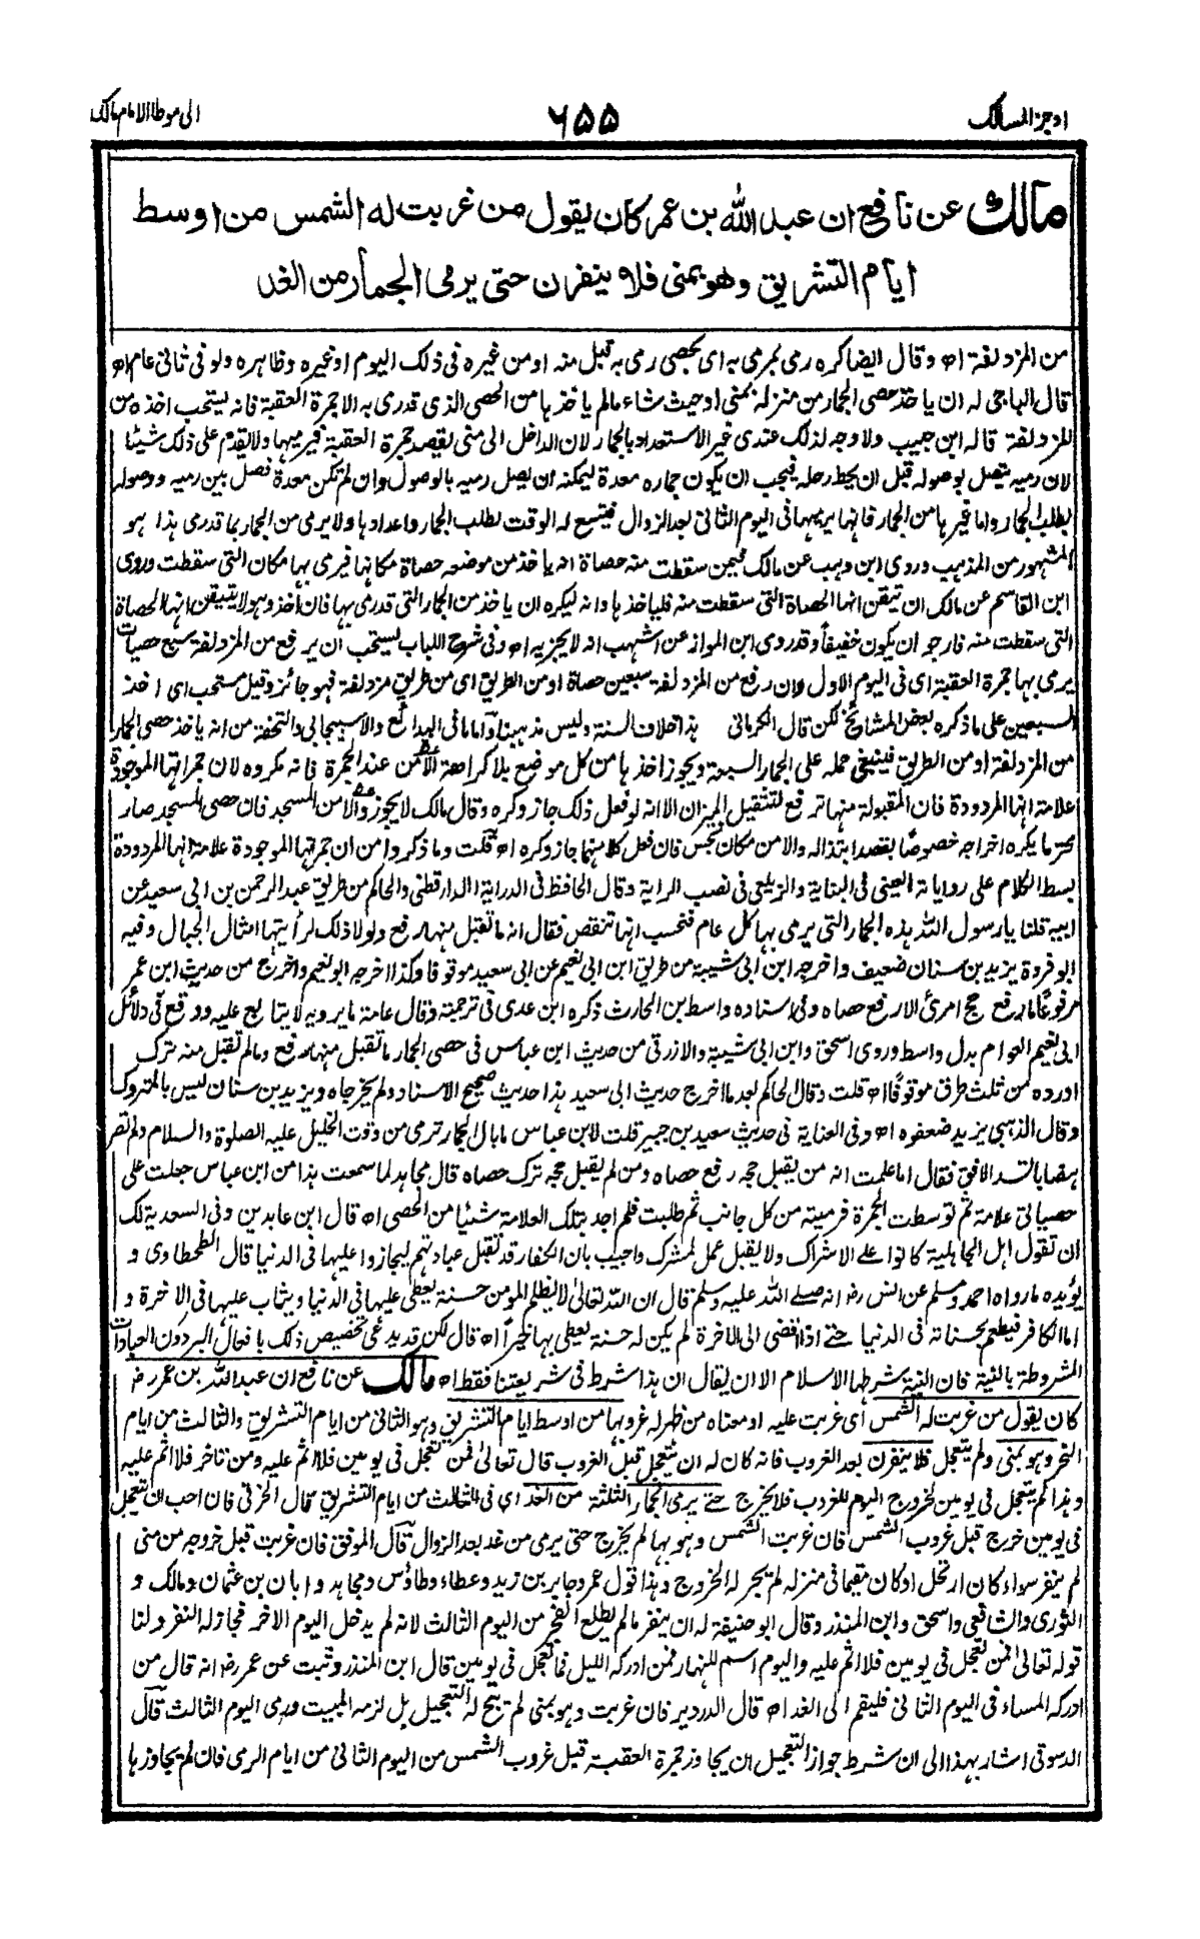 اوجز المسالك
۶۵۵
الى موطا الامام مالك
مالك عن نافع ان عبد الله بن عمر كان يقول من غربت له الشمس من اوسط
ايام التشريق وهو بمنى فلا ينفرن حتى يرمى الجمار من الغد
من المزدلفة اه وقال ايضا كره رمى بمرمى به اى بحصى رمى به قبل منه او من غيره فى ذلك اليوم او غيره وظاهره ولو فى ثانى عام اه
قال الباجى له ان ياخذ حصى الجمار من منزله بمنى او حيث شاء مالم ياخذها من الحصى الذى قد رمى به الا جمرة العقبة فانه يستحب اخذه من
المزدلفة قاله ابن حبيب ولا وجه لذلك عندى غير الاستعداد بالجمار لان الداخل الى منى يقصد جمرة العقبة فيرميها ولا يقدم على ذلك شيئا
لان رميه يتصل بوصوله قبل ان يحط رحله فيجب ان يكون جماره معدة ليمكنه ان يصل رميه بالوصول وان لم تكن معدة فصل بين رميه ووصوله
بطلب الجمار واما غيرها من الجمار فانها يرميها فى اليوم الثانى بعد الزوال فيتسع له الوقت لطلب الجمار واعدادها ولا يرمى من الجمار بما قد رمى هذا هو
المشهور من المذهب وروى ابن وهب عن مالك فيمن سقطت منه حصاة انه ياخذ من موضعه حصاة مكانها فيرمى بها مكان التى سقطت وروى
ابن القاسم عن مالك ان تيقن انها الحصاة التى سقطت منه فلياخذها وانه ليكره ان ياخذ من الجمار التى قد رمى بها فان اخذ وهو لا يتيقن انها الحصاة
التى سقطت منه فارجو ان يكون خفيفا وقد روى ابن المواز عن اشهب انه لا يجزيه اه وفى شرح اللباب يستحب ان يرفع من المزدلفة سبع حصيات
يرمى بها جمرة العقبة اى فى اليوم الاول وان رفع من المزدلفة سبعين حصاة او من الطريق اى من طريق مزدلفة فهو جائز وقيل مستحب اى اخذ
السبعين على ما ذكره بعض المشائخ لكن قال الكرمانى هذا خلاف السنة وليس مذهبنا واما ما فى البدائع والاسبيجابى والتحفة من انه ياخذ حصى الجمار
من المزدلفة او من الطريق فينبغى حمله على الجمار السبعة ويجوز اخذها من كل موضع بلا كراهة الا من عند الجمرة فانه مكروه لان جمراتها الموجودة
علامة انها المردودة فان المقبولة منها ترفع لتثقيل الميزان الا انه لو فعل ذلك جاز وكره وقال مالك لا يجوز والا من المسجد فان حصى المسجد صار
محترما يكره اخراجه خصوصا بقصد ابتذاله والا من مكان نجس فان فعل كلا منها جاز وكره اه قلت وما ذكروا من ان جمراتها الموجودة علامة انها المردودة
بسط الكلام على رواياته العينى فى البناية والزيلعى فى نصب الراية وقال الحافظ فى الدراية الدارقطنى والحاكم من طريق عبد الرحمن بن ابى سعيد عن
ابيه قلنا يا رسول الله هذه الجمار التى يرمى بها كل عام فنحسب انها تنقص فقال انه ما تقبل منها رفع ولولا ذلك لرأيتها امثال الجبال وفيه
ابو فروة يزيد بن سنان ضعيف واخرجه ابن ابى شيبة من طريق ابن ابى نعيم عن ابى سعيد موقوفا وكذا اخرجه ابو نعيم واخرج من حديث ابن عمر
مرفوعا ما رفع حج امرئ الا رفع حصاه وفى اسناده واسط بن الحارث ذكره ابن عدى فى ترجمته وقال عامة ما يرويه لا يتابع عليه ووقع فى دلائل
ابى نعيم العوام بدل واسط وروى اسحق وابن ابى شيبة والازرقى من حديث ابن عباس فى حصى الجمار ما تقبل منها رفع ومالم تقبل منه ترك
اورده من ثلث طرق موقوفا اه قلت وقال الحاكم بعد ما اخرج حديث ابى سعيد هذا حديث صحيح الاسناد ولم يخرجاه ويزيد بن سنان ليس بالمتروك
وقال الذهبى يزيد ضعفوه اه وفى العناية فى حديث سعيد بن جبير قلت لابن عباس ما بال الجمار ترمى من وقت الخليل عليه الصلوة والسلام ولم تصر
هضابا تسد الافق فقال اما علمت انه من يقبل حجه رفع حصاه ومن لم يقبل حجه ترك حصاه قال مجاهد لما سمعت هذا من ابن عباس جعلت على
حصياتى علامة ثم توسطت الجمرة فرميته من كل جانب ثم طلبت فلم اجد بتلك العلامة شيئا من الحصى اه قال ابن عابدين وفى السعدية لك
ان تقول اهل الجاهلية كانوا على الاشراك ولا يقبل عمل لمشرك واجيب بان الكفار قد تقبل عباداتهم ليجازوا عليها فى الدنيا قال الطحطاوى و
يؤيده ما رواه احمد ومسلم عن انس رض انه صلى الله عليه وسلم قال ان الله تعالى لا يظلم المؤمن حسنة يعطى عليها فى الدنيا ويثاب عليها فى الاخرة و
اما الكافر فيطعم بحسناته فى الدنيا حتى اذا افضى الى الاخرة لم يكن له حسنة يعطى بها خيرا اه قال لكن قد يدعى تخصيص ذلك بافعال البر دون العبادات
المشروطة بالنية فان النية شرطها الاسلام الا ان يقال ان هذا شرط فى شريعتنا فقط اه مالك عن نافع ان عبد الله بن عمر رض
كان يقول من غربت له الشمس اى غربت عليه او معناه من ظهر له غروبها من اوسط ايام التشريق وهو الثانى من ايام التشريق والثالث من ايام
النحر وهو بمنى ولم يتعجل فلا ينفرن بعد الغروب فانه كان له ان يتعجل قبل الغروب قال تعالى فمن تعجل فى يومين فلا اثم عليه ومن تاخر فلا اثم عليه
وهذا لم يتعجل فى يومين لخروج اليوم للغروب فلا يخرج حتى يرمى الجمار الثلثة من الغد اى فى الثالث من ايام التشريق قال الخرقى فان احب ان يتعجل
فى يومين خرج قبل غروب الشمس فان غربت الشمس وهو بها لم يخرج حتى يرمى من غد بعد الزوال قال الموفق فان غربت قبل خروجه من منى
لم ينفر سواء كان ارتحل او كان مقيما فى منزله لم يجز له الخروج وهذا قول عمر وجابر بن زيد وعطاء وطاؤس ومجاهد وابان بن عثمان ومالك و
الثورى والشافعى واسحق وابن المنذر وقال ابو حنيفة له ان ينفر مالم يطلع الفجر من اليوم الثالث لانه لم يدخل اليوم الاخر فجاز له النفر ولنا
قوله تعالى فمن تعجل فى يومين فلا اثم عليه واليوم اسم للنهار فمن ادركه الليل فما تعجل فى يومين قال ابن المنذر وثبت عن عمر رض انه قال من
ادركه المساء فى اليوم الثانى فليقم الى الغد اه قال الدردير فان غربت وهو بمنى لم يبح له التعجيل بل لزمه المبيت ورمى اليوم الثالث قال
الدسوقى اشار بهذا الى ان شرط جواز التعجيل ان يجاوز جمرة العقبة قبل غروب الشمس من اليوم الثانى من ايام الرمى فان لم يجاوزها